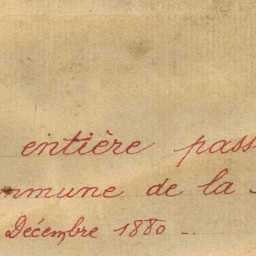 entière pass
mmune de la
Décembre 1880 -